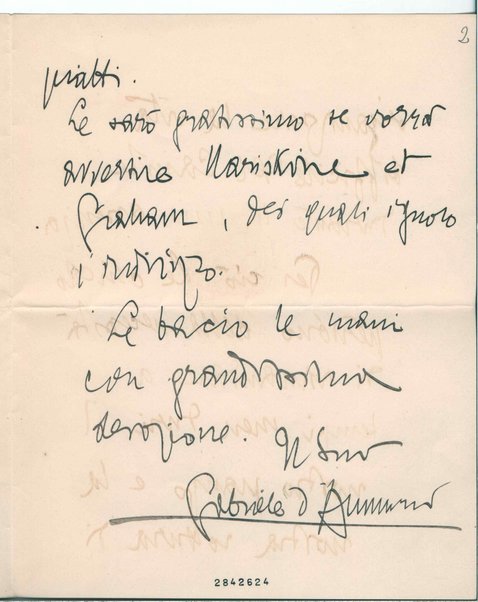 2
piatti.
Le sarò gratissimo se vorrà
avvertire et
Graham, dei quali ignoro
l'indirizzo.
Le bacio le mani
con grandissima
devozione. Il Suo
Gabriele d'Annunzio
2842624